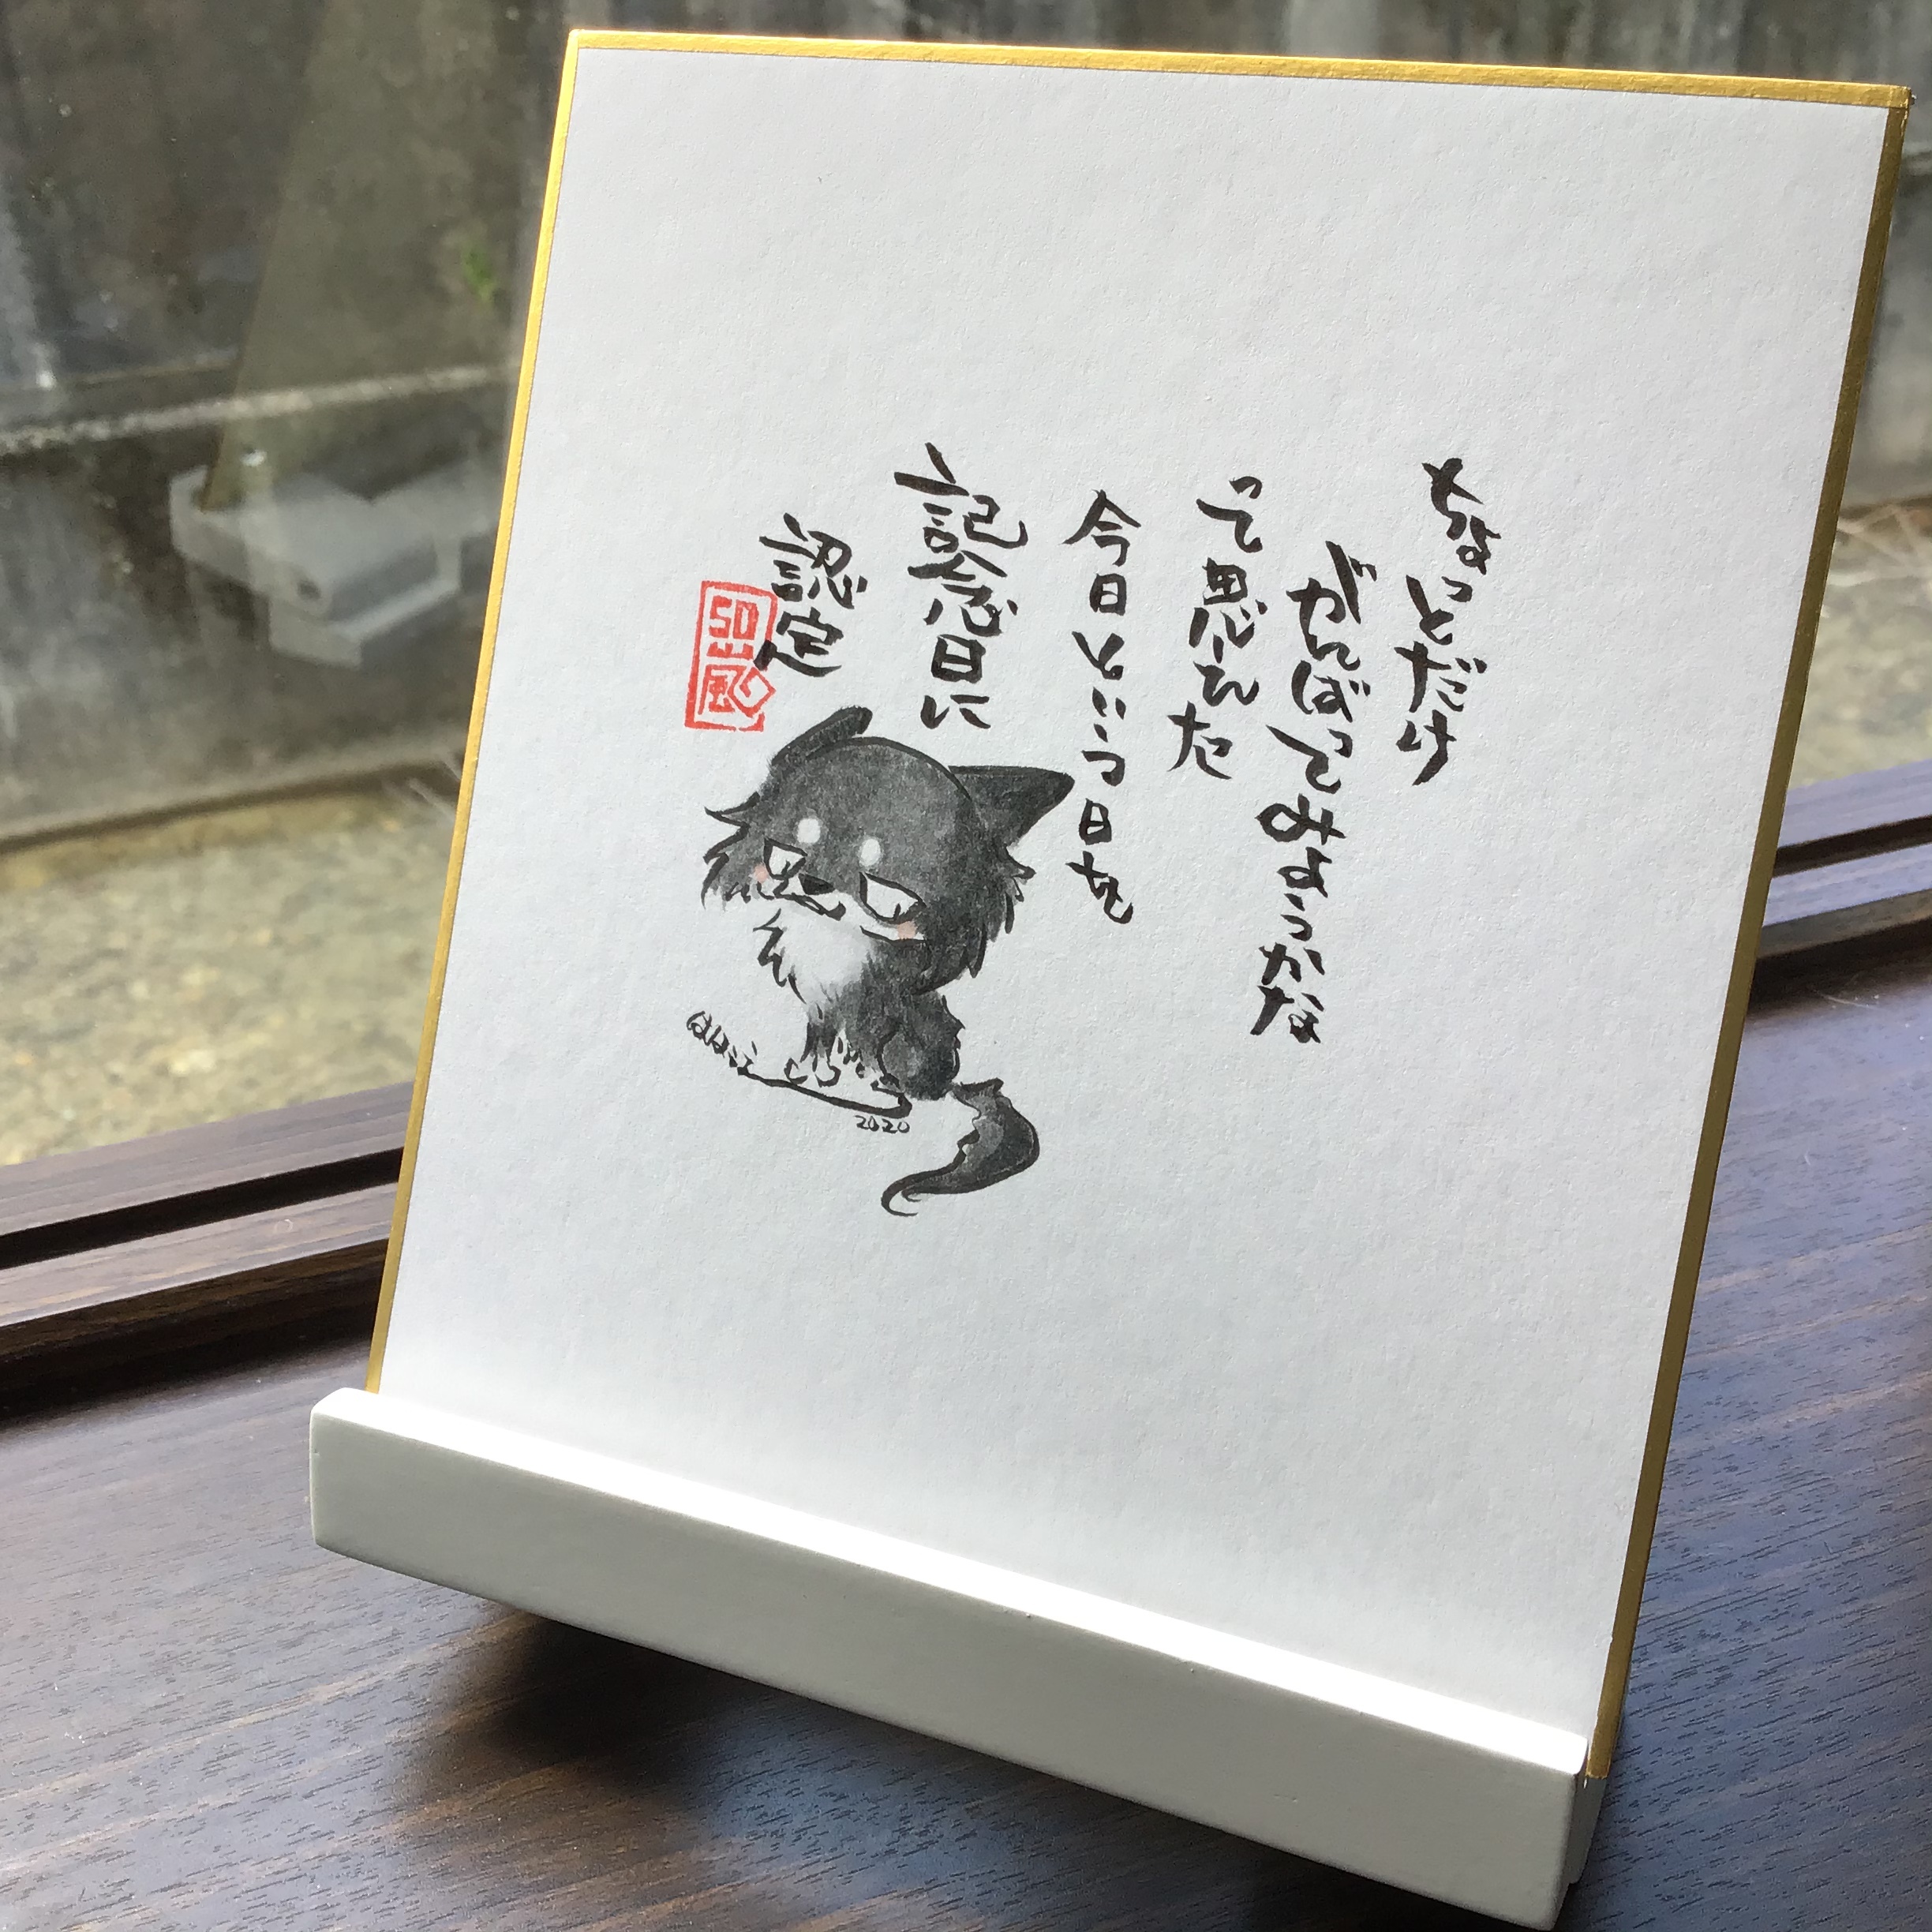 ちょっとだけ
がんばってみようかな
って思えた
今日という日を
記念日に
認定
2020